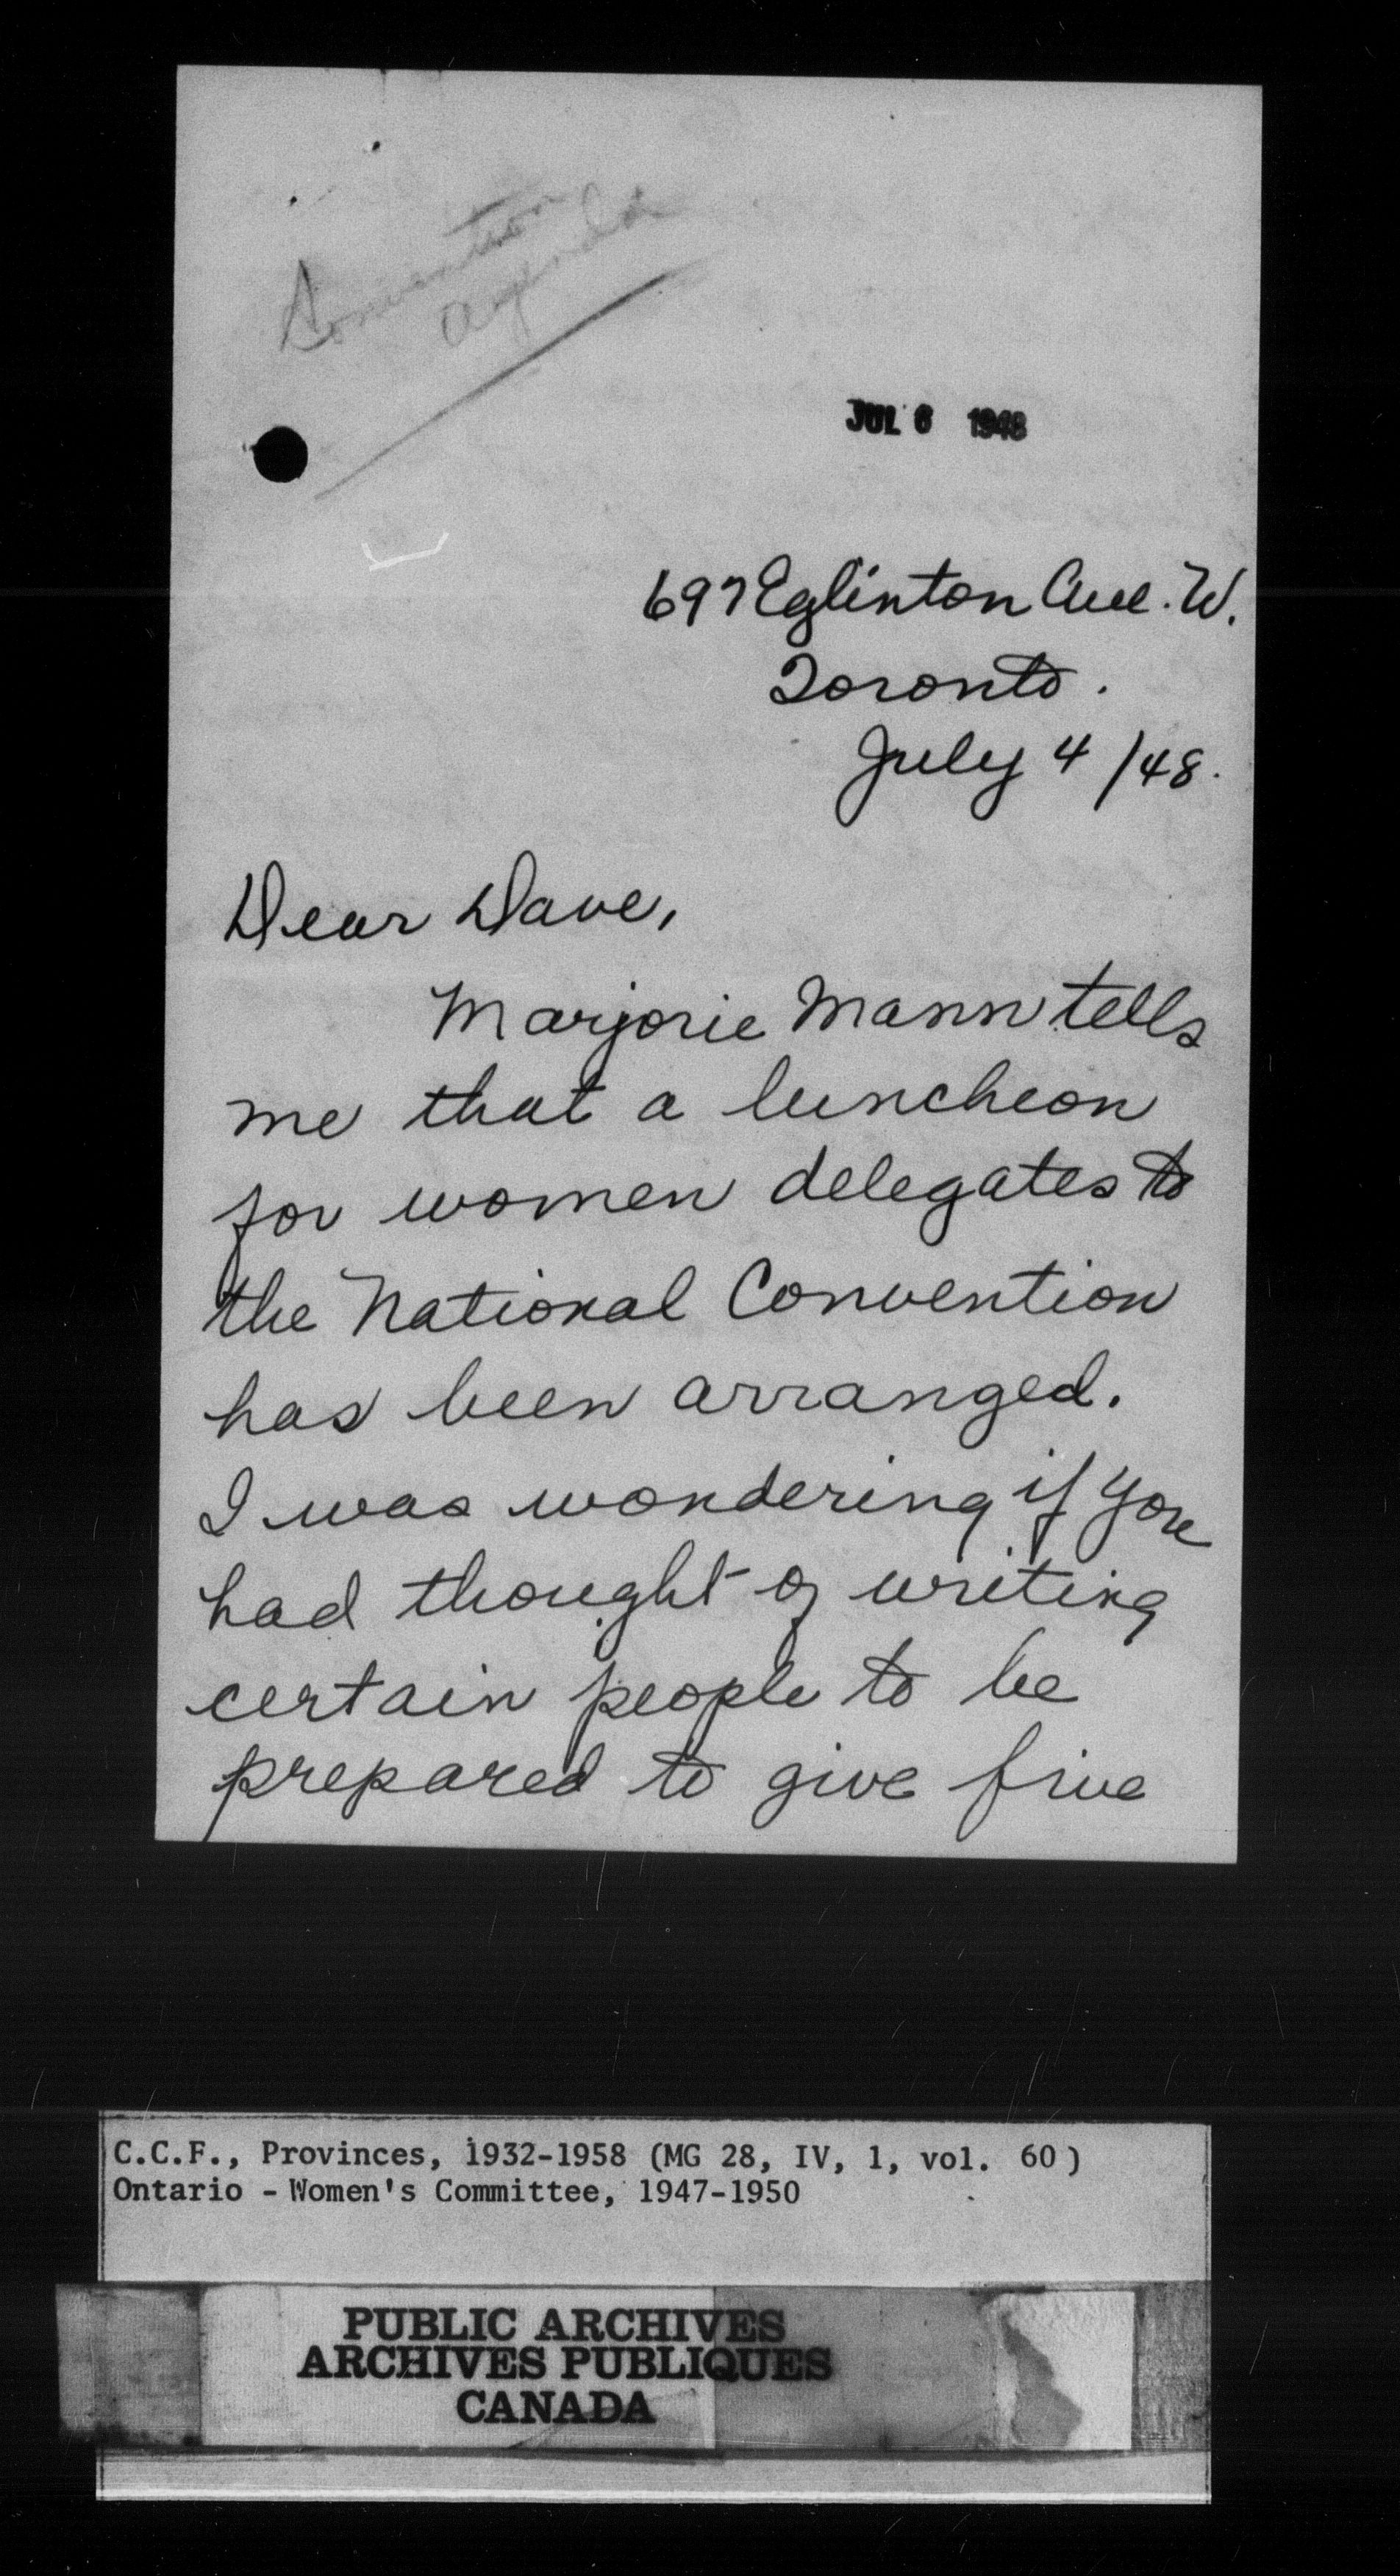 Convention
agenda
JUL 6 1948
697 Eglinton Ave. W.
Toronto.
July 4 /48.
Dear Dave,
Marjorie Mann tells
me that a luncheon
for women delegates to
the National Convention
has been arranged.
I was wondering if you
had thought of writing
certain people to be
prepared to give five
C.C.F., Provinces, 1932-1958 (MG 28, IV, 1, vol. 60)
Ontario - Women's Committee, 1947-1950
PUBLIC ARCHIVES
ARCHIVES PUBLIQUES
CANADA